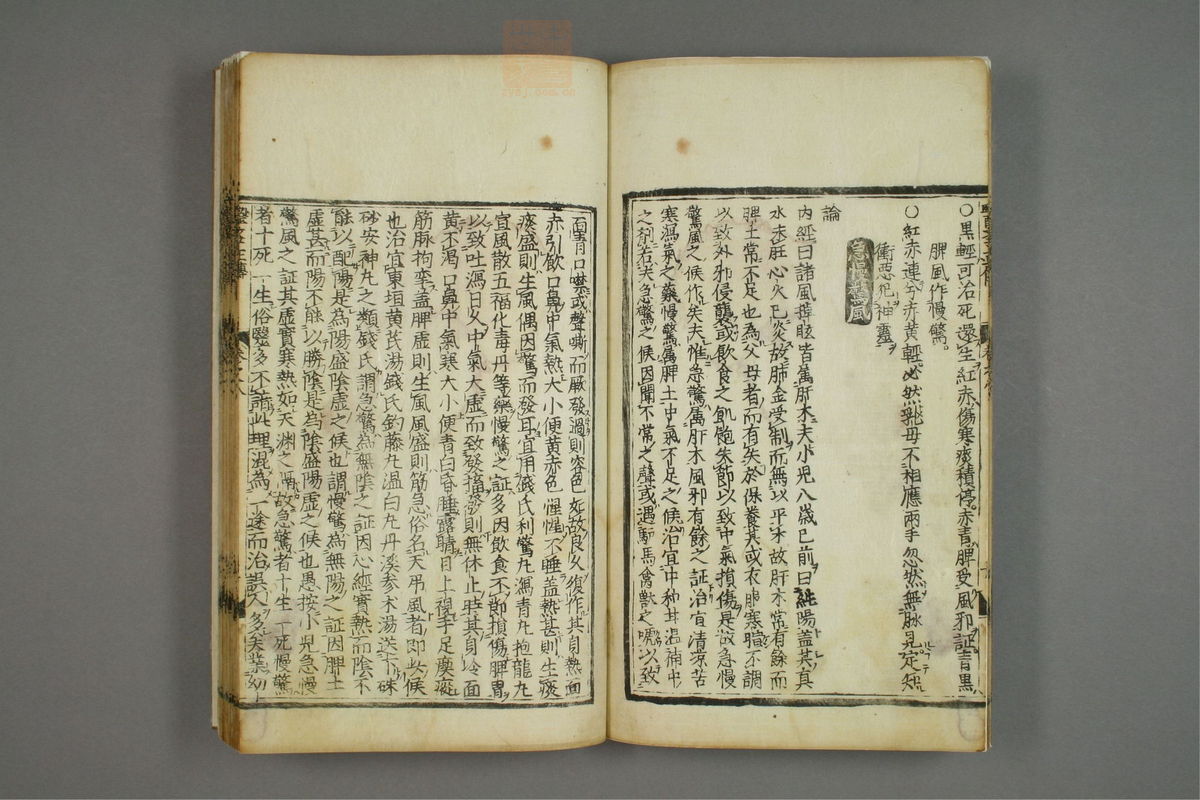 ○黑輕可治死還生紅赤傷寒痰積停赤青脾受風邪証青黑
脾風作慢驚
○紅赤連兮赤黃輕必然乳母不相應兩手忽然無脉見定知
衝惡犯神靈
急慢驚風
論
內經曰諸風掉眩皆屬肝木夫小兒八歲已前曰純陽蓋其真
水未旺心火已炎故肺金受制而無以平木故肝木常有餘而
脾土常不足也為父母者而有失於保養其或衣服寒暄不調
以致外邪侵襲或飲食之飢飽失節以致中氣損傷是故急慢
驚風之候作矣夫惟急驚属肝木風邪有餘之証治宜清凉苦
寒瀉氣之藥慢驚属脾土中氣不足之候治宜中和甘温補中
之劑若夫急驚之候因聞不常之聲或遇馬禽獸之唬以致
面青口噤或聲嘶而厥發過則容色如故良久復作其身熱面
赤引飲口鼻中氣熱大小便黃赤色惺惺不睡蓋熱甚則生痰
痰盛則生風偶因驚而發耳宜用錢氏利驚丸瀉青丸抱龍丸
宜風散五福化毒丹等藥慢驚之証多因飲食不節損傷脾胃
以致吐瀉日久中氣大虛而致發搐發則無休止時其身冷面
黃不渴口鼻中氣寒大小便青白昏睡露睛目上視手足瘈瘲
筋脉拘攣蓋脾虛則生風風盛則筋急俗名天吊風者即此候
也治宜東垣黃芪湯錢氏釣藤丸温白丸丹溪参术湯送下硃
砂安神丸之類錢氏謂急驚為無陰之証因心經實熱而陰不
能以配陽是為陽盛陰虛之候也謂慢驚為無陽之証因脾土
虛甚而陽不能以勝陰是為陰盛陽虛之候也愚按小兒急慢
驚風之証其虛實寒熱如天渊之隔故急驚者十生一死慢驚
者十死一生俗醫多不諳此理混為一途而治誤人多矣業幼